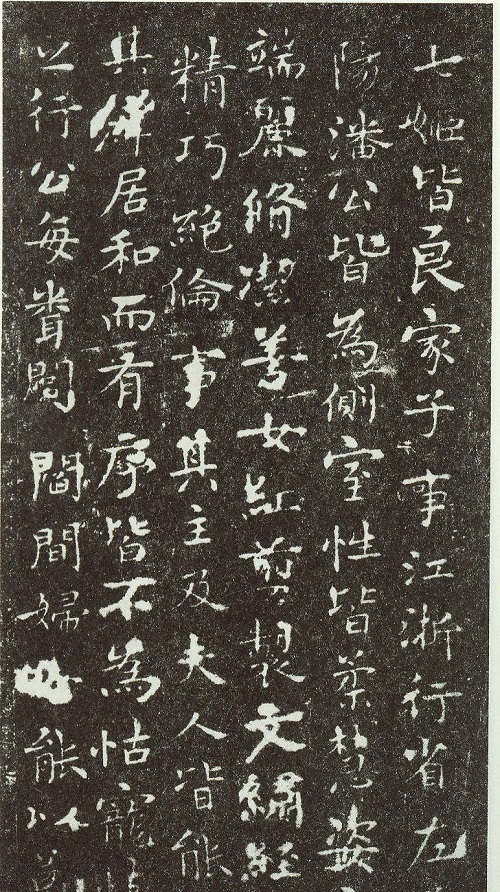 七姬皆良家子事江浙行省左
陽潘公皆為側室性皆柔慧姿
端麗脩潔善女紅剪製文繡經
精巧絕倫事其主及夫人皆能
其羣居和而有序皆不為怙寵
之行公每閭閻間婦能以